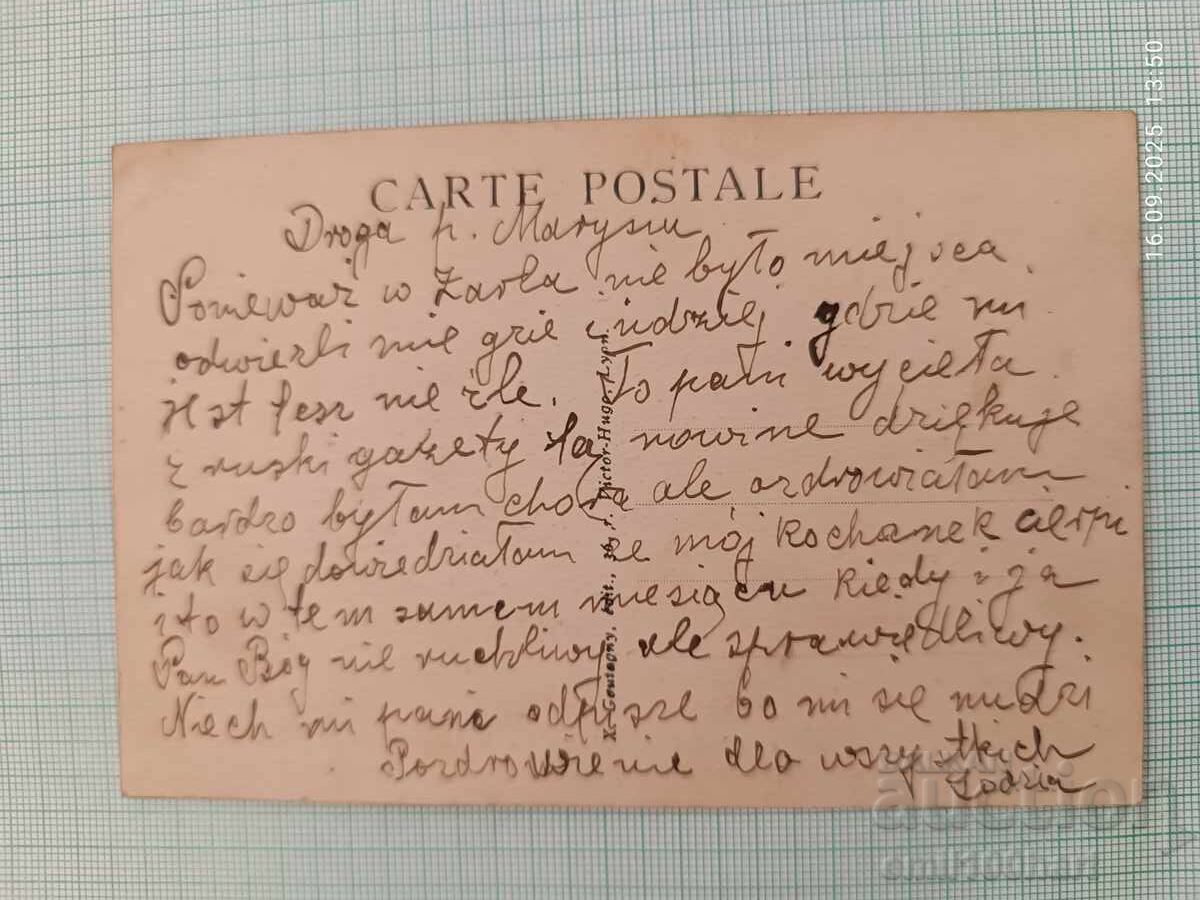 CARTE POSTALE
Droga p. Marysiu
Poniewaz w nie było miejsca
odwiezli mie gzie indziej gdzie mi
jest tesz nie źle. To pani wycieła
z ruski gazety tą nowine dziękuje
bardzo byłam chora ale ozdrowiałam
jak się dowiedziałam ze mój kochanek cierpi
i to w tem samem miesiącu kiedy i ja
Pan Bóg nie ruchliwy ale sprawiedliwy.
Niech mi pani odpisze bo mi się nudzi
Pozdrowienie dla wszystkich
Lodzia
X. Goutagny, édit., r. Victor-Hugo, Lyon
16.09.2025 13:50
auction